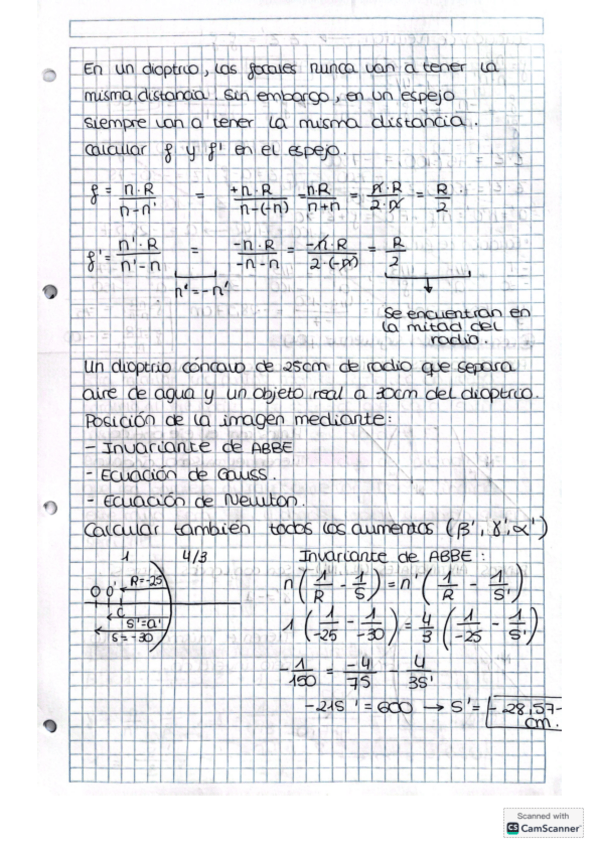 En un dioptrio, las focales nunca van a tener la
misma distancia. Sin embargo, en un espejo
siempre van a tener la misma distancia.
Calcular f y f' en el espejo.
f = n·R / n-n' = +n·R / n-(-n) = n·R / n+n = n·R / 2·n = R / 2
f' = n'·R / n'-n = -n·R / -n-n = -n·R / 2·(-n) = R / 2
n' = -n'
Se encuentran en
la mitad del
radio.
Un dioptrio cóncavo de 25cm de radio que separa
aire de agua y un objeto real a 30cm del dioptrio.
Posición de la imagen mediante:
- Invariante de ABBE
- Ecuación de Gauss.
- Ecuación de Newton.
Calcular también todos los aumentos (β', γ', α')
1 4/3 Invariante de ABBE:
O O' R=-25
C
S'=a'
S=-30
n(1/R - 1/S) = n'(1/R - 1/S')
1(1/-25 - 1/-30) = 4/3(1/-25 - 1/S')
-1/150 = -4/75 - 4/3S'
-21S' = 600 → S' = -28,57
cm.
Scanned with
CS CamScanner